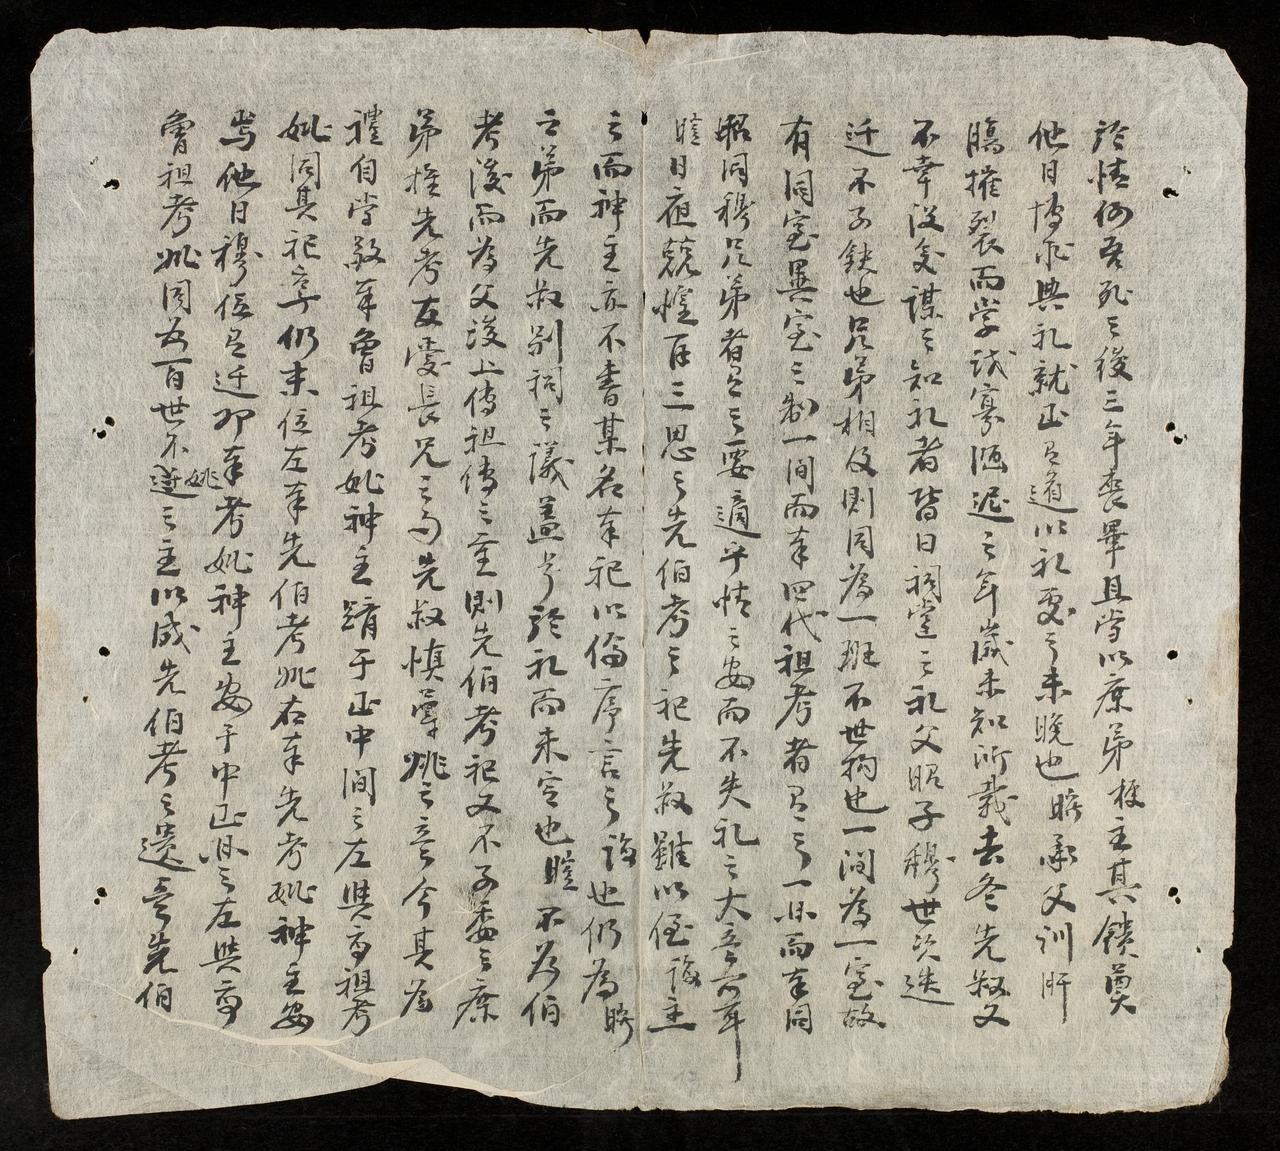 於情何吾死之後三年喪畢且當以庶弟枝主其饋奠
他日博求典礼就正有道以礼处之未晚也晦承父訓肝
膓摧裂而学識寡陋遲之年歲未知所裁去冬先叔又
不幸没矣謀之知礼者皆曰祠堂之礼父昭子穆世次迭
迁不可缺也兄弟相及則同為一班不世拘也一间為一室故
有同室異室之制一间而奉四代祖考者有之一龕而奉同
昭同穆兄弟者有之要適乎情之安而不失礼之大意可耳
瞳日夜兢惶再三思之先伯考之祀先叔雖以侄誨主
之而神主亦不書某名奉祀以倫序言之誨也仍為晦
之弟而先叔别祠之議盖考於礼而未定也瞳不為伯
考後而為父後上传祖传之重則先伯考祀又不可委之庶
弟推先考友愛長兄之与先叔慎宗祧之意今其為
禮自當敬奉曾祖考妣神主躋于正中间之左與高祖考
妣同其祀享仍末位左奉先伯考妣右奉先考妣神主安
焉他日穆位有迁卯奉考妣神主安于中正龕之左與高
曾祖考妣同为百世不遷妣之主以成先伯考之遺意先伯